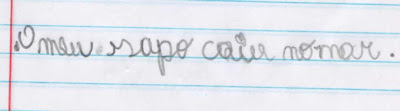 O meu sapo caiu no mar.